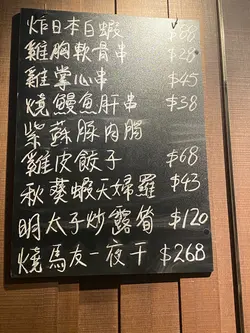 炸日本白蝦 $68
雞胸軟骨串 $28
雞掌心串 $45
燒鰻魚肝串 $38
紫蘇豚肉腸
雞皮餃子 $68
秋葵蝦天婦羅 $43
明太子炒露筍 $120
燒馬友一夜干 $268